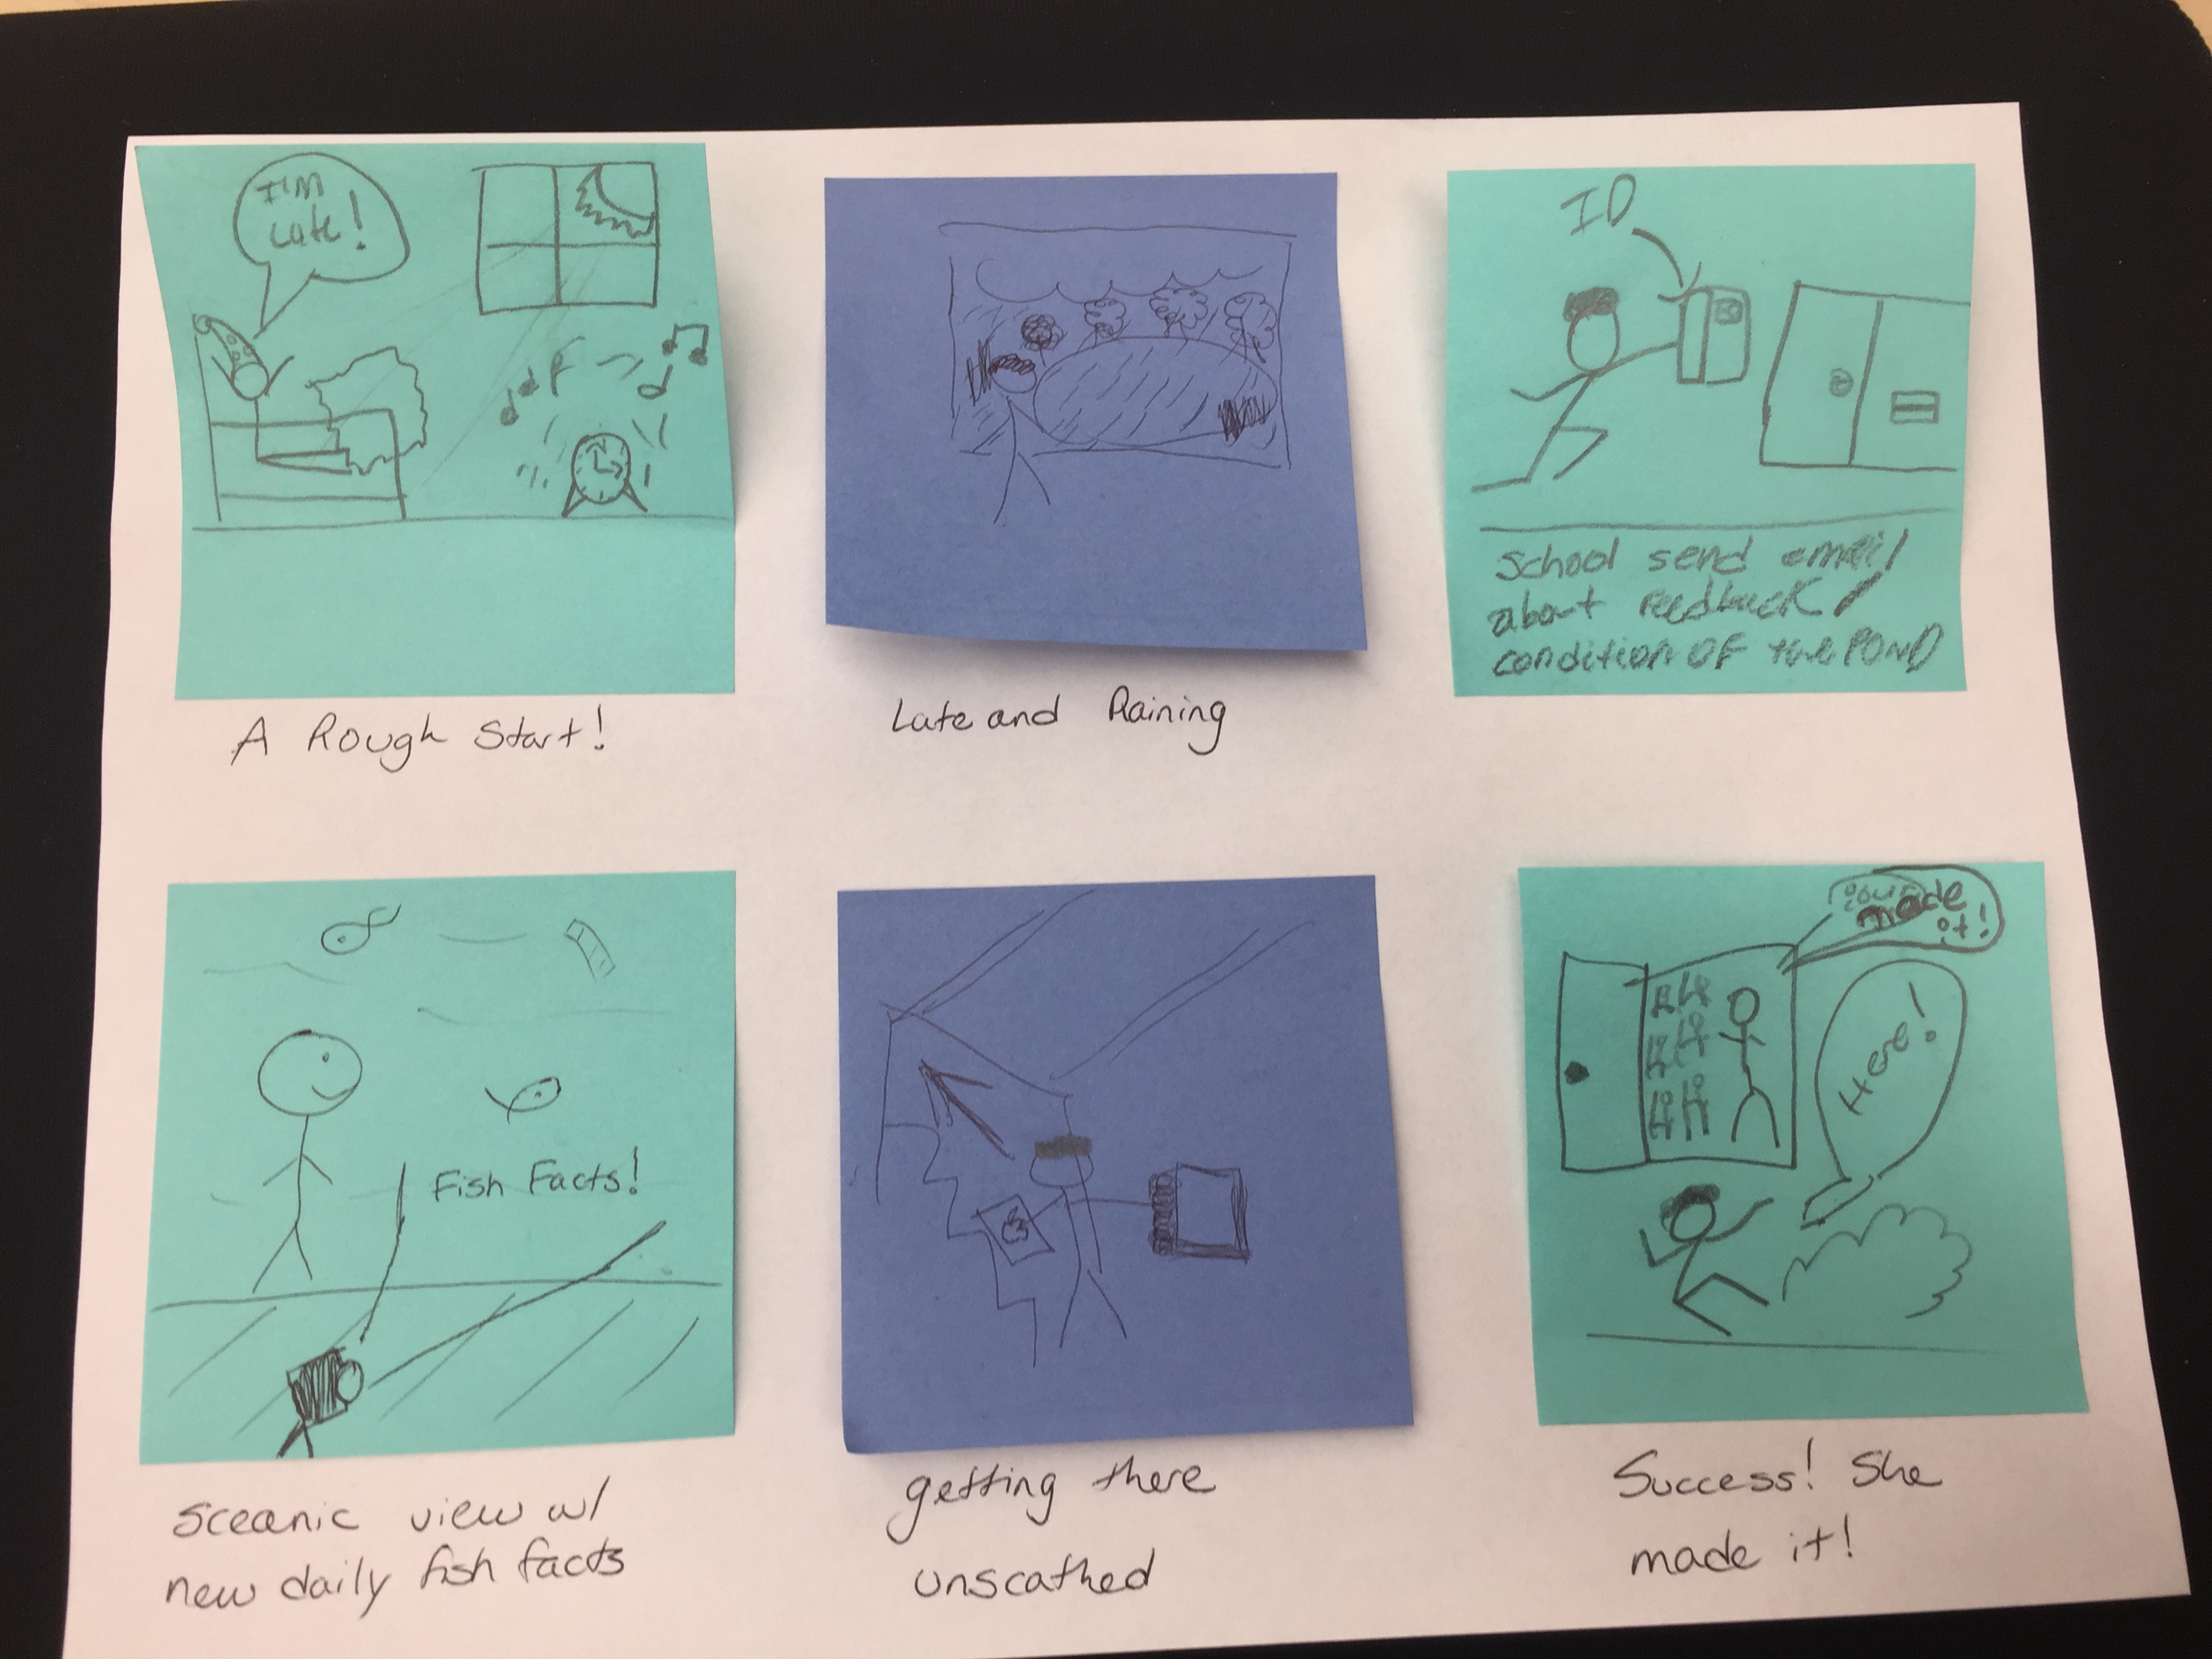 I'M
Late!
A Rough Start!
Late and Raining
ID
School send email
about feedback/
condition OF the POND
Fish Facts!
Sceanic view w/
new daily fish facts
getting there
unscathed
made
it!
Here!
Success! She
made it!